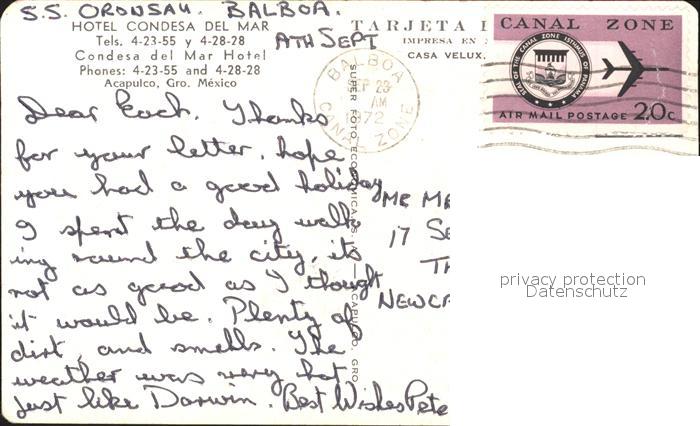 S.S. ORONSAY. BALBOA.
HOTEL CONDESA DEL MAR
Tels. 4-23-55 y 4-28-28
Condesa del Mar Hotel
Phones: 4-23-55 and 4-28-28
Acapulco, Gro. México
TH SEPT
TARJETA
IMPRESA EN
CASA VELUX.
CANAL ZONE
SEAL OF THE CANAL ZONE ISTHMUS OF PANAMA
AIR MAIL POSTAGE 20c
BALBOA
SEP 23
AM
1972
CANAL ZONE
SUPER FOTO ECONOMICA ACAPULCO, GRO.
Dear Each. Thanks
for your letter, hope
you had a good holiday
I spent the day walk
ing round the city, its
not as good as I thought
it would be. Plenty of
dirt, and smells. The
weather was very hot
just like Darwin. Best Wishes Pete
MR
17
NEWCA
privacy protection
Datenschutz